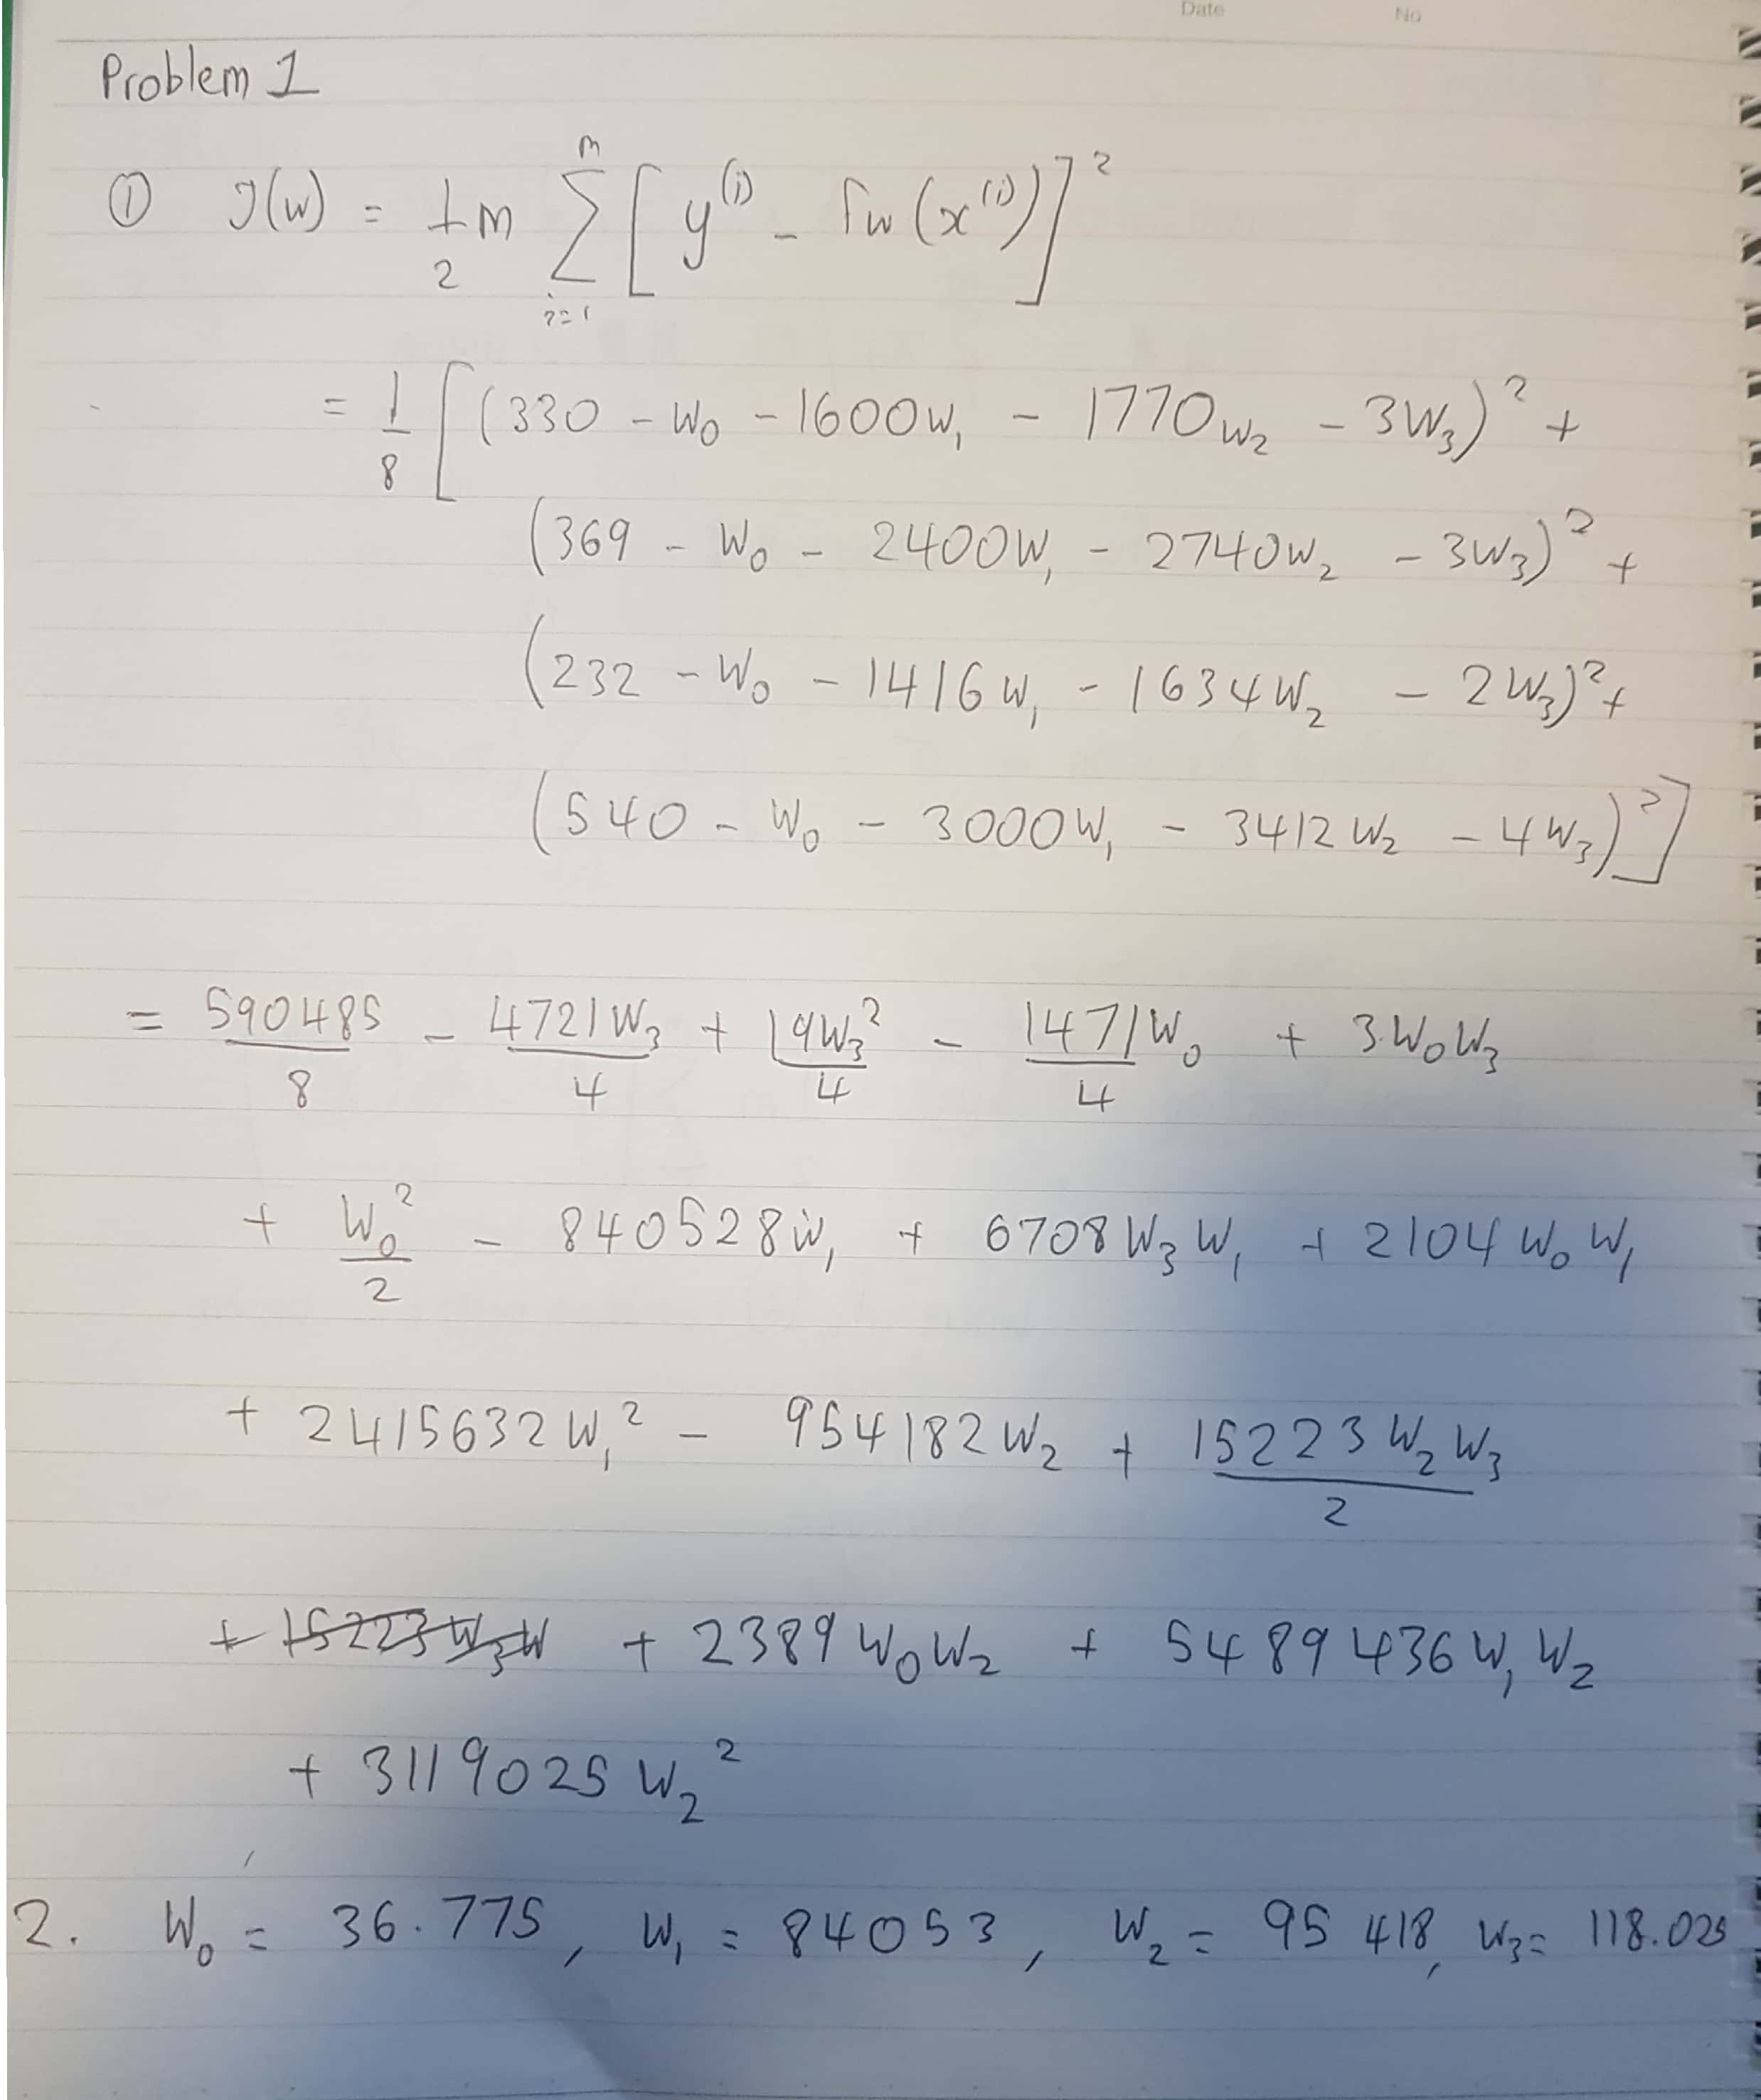 Date No
Problem 1
① J(w) = 1/2 m ∑ᵢ₌₁ᵐ [y⁽ⁱ⁾ - fw(x⁽ⁱ⁾)]²
= 1/8 [(330 - w₀ - 1600w₁ - 1770w₂ - 3w₃)² +
(369 - w₀ - 2400w₁ - 2740w₂ - 3w₃)² +
(232 - w₀ - 1416w₁ - 1634w₂ - 2w₃)² +
(540 - w₀ - 3000w₁ - 3412w₂ - 4w₃)²]
= 590485/8 - 4721w₃/4 + 19w₃²/4 - 1471w₀/4 + 3w₀w₃
+ w₀²/2 - 840528w₁ + 6708w₃w₁ + 2104w₀w₁
+ 2415632w₁² - 954182w₂ + 15223w₂w₃/2
+ 15223w₃w + 2389w₀w₂ + 5489436w₁w₂
+ 3119025w₂²
2. w₀ = 36.775, w₁ = 84053, w₂ = 95418, w₃ = 118.025